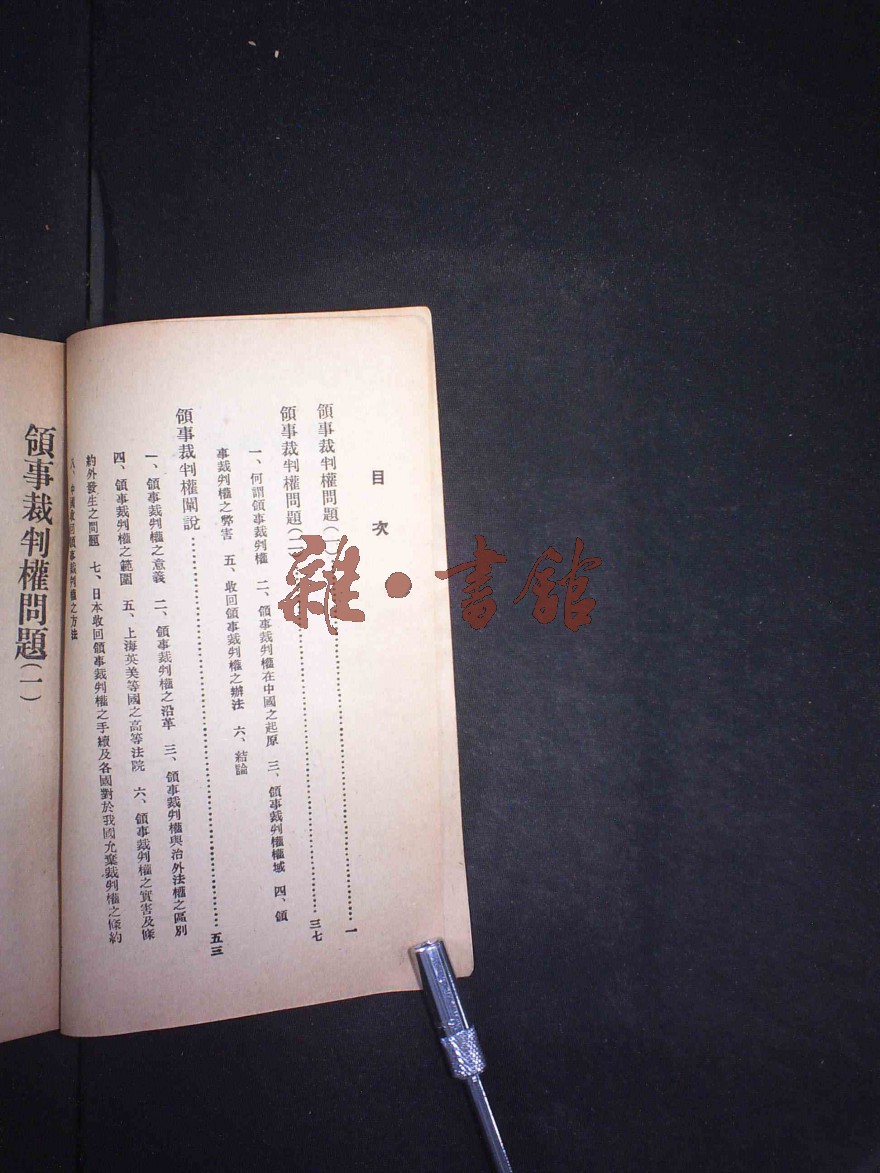 目次
領事裁判權問題(一)……一
領事裁判權問題(二)……三七
一、何謂領事裁判權 二、領事裁判權在中國之起原 三、領事裁判權權域 四、領
事裁判權之弊害 五、收回領事裁判權之辦法 六、結論
領事裁判權闡說……五三
一、領事裁判權之意義 二、領事裁判權之沿革 三、領事裁判權與治外法權之區別
四、領事裁判權之範圍 五、上海英美等國之高等法院 六、領事裁判權之實害及條
約外發生之問題 七、日本收回領事裁判權之手續及各國對於我國允棄裁判權之條約
八、中國收回領事裁判權之方法
領事裁判權問題(一)
雜·書館